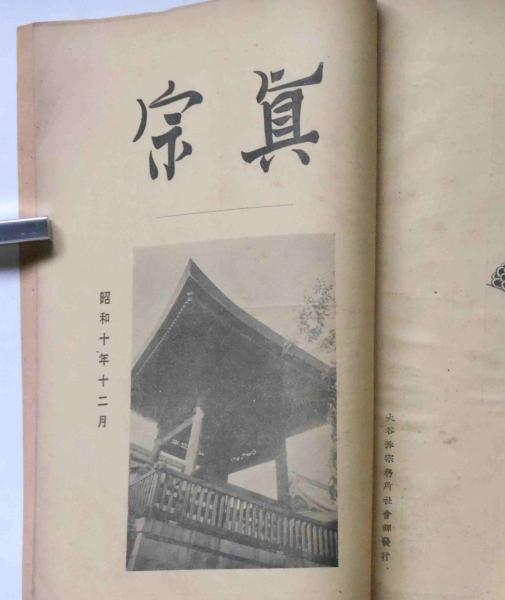 眞宗
昭和十年十二月
大谷派宗務所社會部發行